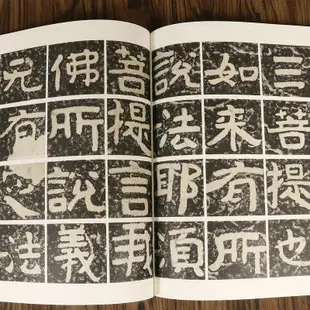 三菩提也
如来有所
說法耶須
菩提言我
佛所說義
无有法